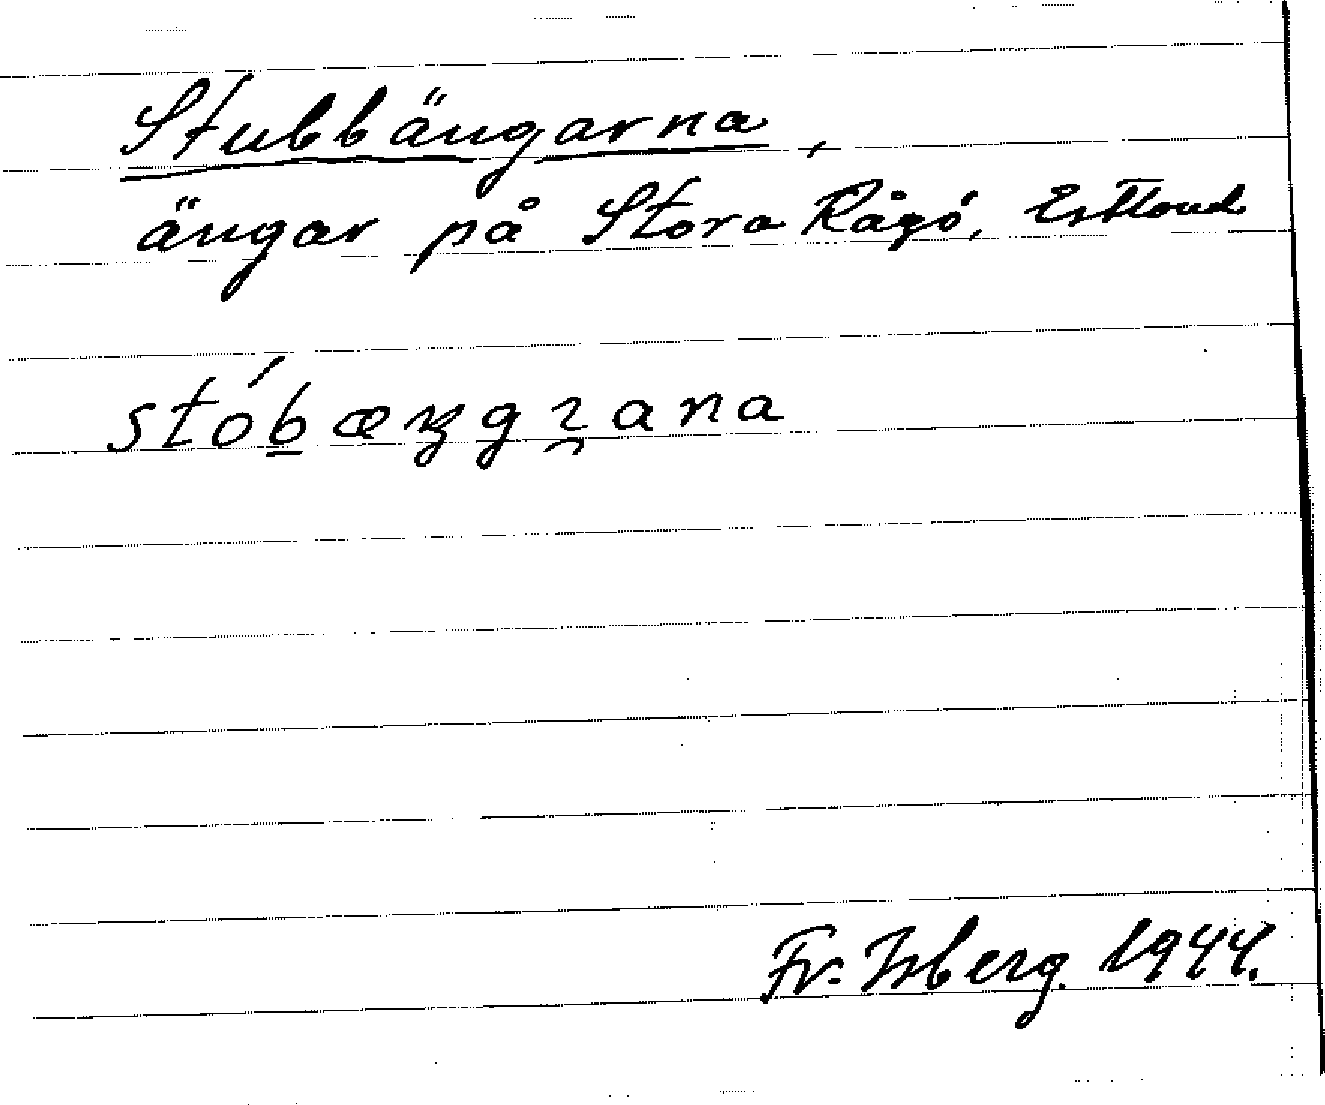 Stubbängarna,
ängar på Stora Rågö, Estland
stób̲æŋgɿ̯ana
Fr. Isberg. 1944.